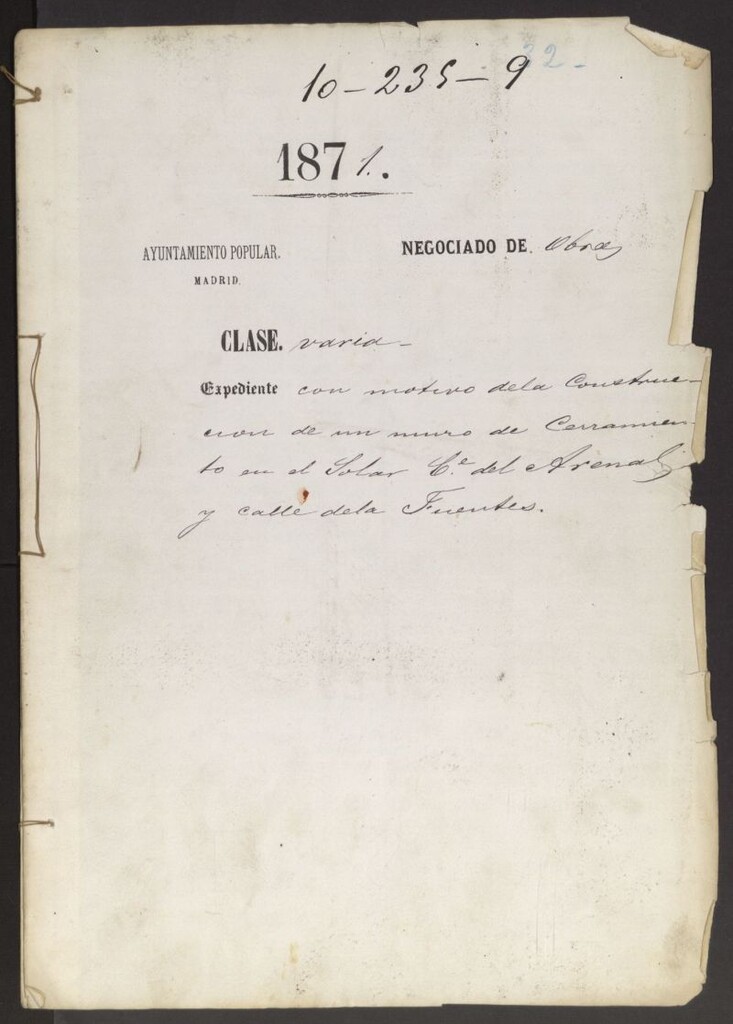 10-235-9
32-
1871.
AYUNTAMIENTO POPULAR.
MADRID.
NEGOCIADO DE. Obras
CLASE. varia-
Expediente con motivo dela Construc-
cion de un muro de Cerramien-
to en el Solar C.e del Arenal
y calle dela Fuentes.